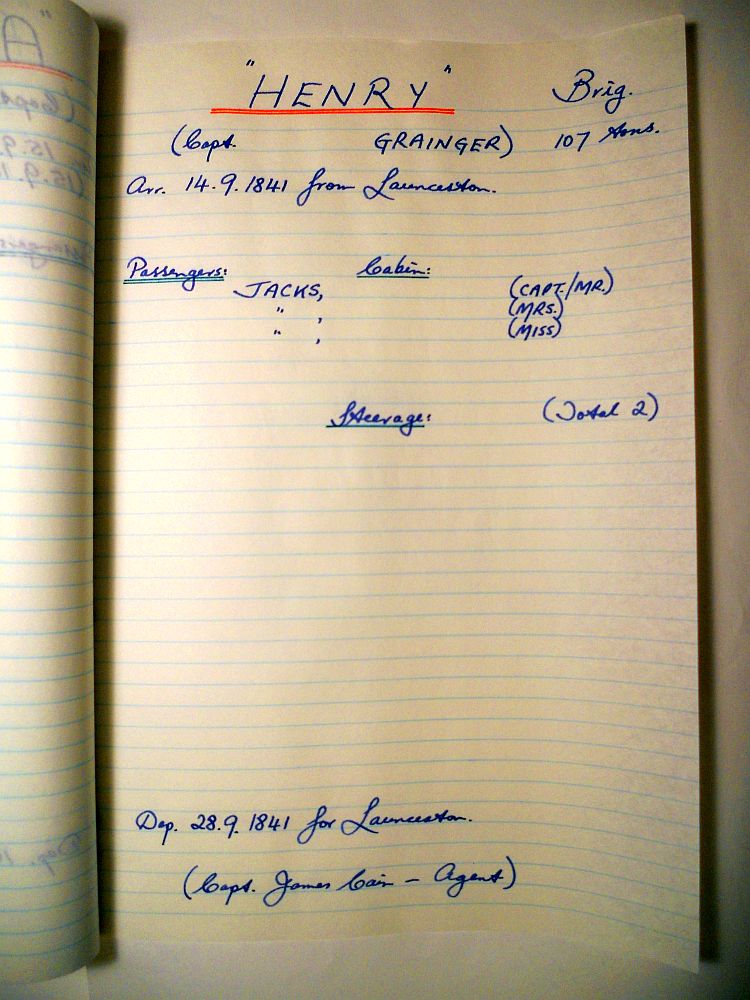 "HENRY" Brig.
(Capt. GRAINGER) 107 tons.
Arr. 14.9.1841 from Launceston.
Passengers: Cabin:
JACKS, (CAPT./MR.)
" , (MRS.)
" , (MISS)
Steerage: (Total 2)
Dep. 28.9.1841 for Launceston.
(Capt. James Cain – Agent)